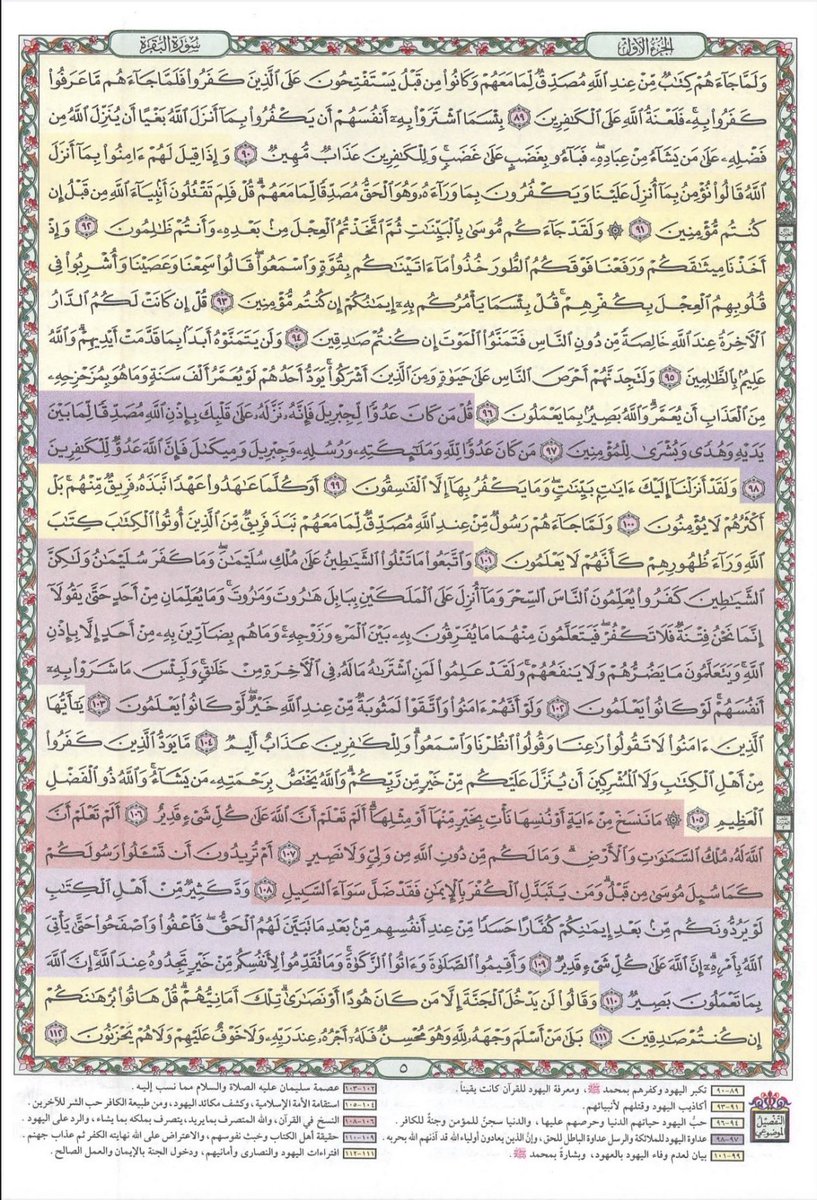 الجزء الأول
سورة البقرة
وَلَمَّا جَاءَهُمْ كِتَابٌ مِّنْ عِندِ اللَّهِ مُصَدِّقٌ لِّمَا مَعَهُمْ وَكَانُوا مِن قَبْلُ يَسْتَفْتِحُونَ عَلَى الَّذِينَ كَفَرُوا فَلَمَّا جَاءَهُم مَّا عَرَفُوا
كَفَرُوا بِهِ فَلَعْنَةُ اللَّهِ عَلَى الْكَافِرِينَ ٨٩ بِئْسَمَا اشْتَرَوْا بِهِ أَنفُسَهُمْ أَن يَكْفُرُوا بِمَا أَنزَلَ اللَّهُ بَغْيًا أَن يُنَزِّلَ اللَّهُ مِن
فَضْلِهِ عَلَى مَن يَشَاءُ مِنْ عِبَادِهِ فَبَاءُو بِغَضَبٍ عَلَى غَضَبٍ وَلِلْكَافِرِينَ عَذَابٌ مُّهِينٌ ٩٠ وَإِذَا قِيلَ لَهُمْ ءَامِنُوا بِمَا أَنزَلَ
اللَّهُ قَالُوا نُؤْمِنُ بِمَا أُنزِلَ عَلَيْنَا وَيَكْفُرُونَ بِمَا وَرَاءَهُ وَهُوَ الْحَقُّ مُصَدِّقًا لِّمَا مَعَهُمْ قُلْ فَلِمَ تَقْتُلُونَ أَنبِيَاءَ اللَّهِ مِن قَبْلُ إِن
كُنتُم مُّؤْمِنِينَ ٩١ ۞ وَلَقَدْ جَاءَكُم مُّوسَى بِالْبَيِّنَاتِ ثُمَّ اتَّخَذْتُمُ الْعِجْلَ مِن بَعْدِهِ وَأَنتُمْ ظَالِمُونَ ٩٢ وَإِذْ
أَخَذْنَا مِيثَاقَكُمْ وَرَفَعْنَا فَوْقَكُمُ الطُّورَ خُذُوا مَا ءَاتَيْنَاكُم بِقُوَّةٍ وَاسْمَعُوا قَالُوا سَمِعْنَا وَعَصَيْنَا وَأُشْرِبُوا فِي
قُلُوبِهِمُ الْعِجْلَ بِكُفْرِهِمْ قُلْ بِئْسَمَا يَأْمُرُكُم بِهِ إِيمَانُكُمْ إِن كُنتُم مُّؤْمِنِينَ ٩٣ قُلْ إِن كَانَتْ لَكُمُ الدَّارُ
الْآخِرَةُ عِندَ اللَّهِ خَالِصَةً مِّن دُونِ النَّاسِ فَتَمَنَّوُا الْمَوْتَ إِن كُنتُمْ صَادِقِينَ ٩٤ وَلَن يَتَمَنَّوْهُ أَبَدًا بِمَا قَدَّمَتْ أَيْدِيهِمْ وَاللَّهُ
عَلِيمٌ بِالظَّالِمِينَ ٩٥ وَلَتَجِدَنَّهُمْ أَحْرَصَ النَّاسِ عَلَى حَيَوٰةٍ وَمِنَ الَّذِينَ أَشْرَكُوا يَوَدُّ أَحَدُهُمْ لَوْ يُعَمَّرُ أَلْفَ سَنَةٍ وَمَا هُوَ بِمُزَحْزِحِهِ
مِنَ الْعَذَابِ أَن يُعَمَّرَ وَاللَّهُ بَصِيرٌ بِمَا يَعْمَلُونَ ٩٦ قُلْ مَن كَانَ عَدُوًّا لِّجِبْرِيلَ فَإِنَّهُ نَزَّلَهُ عَلَى قَلْبِكَ بِإِذْنِ اللَّهِ مُصَدِّقًا لِّمَا بَيْنَ
يَدَيْهِ وَهُدًى وَبُشْرَى لِلْمُؤْمِنِينَ ٩٧ مَن كَانَ عَدُوًّا لِّلَّهِ وَمَلَائِكَتِهِ وَرُسُلِهِ وَجِبْرِيلَ وَمِيكَالَ فَإِنَّ اللَّهَ عَدُوٌّ لِّلْكَافِرِينَ
٩٨ وَلَقَدْ أَنزَلْنَا إِلَيْكَ ءَايَاتٍ بَيِّنَاتٍ وَمَا يَكْفُرُ بِهَا إِلَّا الْفَاسِقُونَ ٩٩ أَوَكُلَّمَا عَاهَدُوا عَهْدًا نَّبَذَهُ فَرِيقٌ مِّنْهُم بَلْ
أَكْثَرُهُمْ لَا يُؤْمِنُونَ ١٠٠ وَلَمَّا جَاءَهُمْ رَسُولٌ مِّنْ عِندِ اللَّهِ مُصَدِّقٌ لِّمَا مَعَهُمْ نَبَذَ فَرِيقٌ مِّنَ الَّذِينَ أُوتُوا الْكِتَابَ كِتَابَ
اللَّهِ وَرَاءَ ظُهُورِهِمْ كَأَنَّهُمْ لَا يَعْلَمُونَ ١٠١ وَاتَّبَعُوا مَا تَتْلُوا الشَّيَاطِينُ عَلَى مُلْكِ سُلَيْمَانَ وَمَا كَفَرَ سُلَيْمَانُ وَلَكِنَّ
الشَّيَاطِينَ كَفَرُوا يُعَلِّمُونَ النَّاسَ السِّحْرَ وَمَا أُنزِلَ عَلَى الْمَلَكَيْنِ بِبَابِلَ هَارُوتَ وَمَارُوتَ وَمَا يُعَلِّمَانِ مِنْ أَحَدٍ حَتَّى يَقُولَا
إِنَّمَا نَحْنُ فِتْنَةٌ فَلَا تَكْفُرْ فَيَتَعَلَّمُونَ مِنْهُمَا مَا يُفَرِّقُونَ بِهِ بَيْنَ الْمَرْءِ وَزَوْجِهِ وَمَا هُم بِضَارِّينَ بِهِ مِنْ أَحَدٍ إِلَّا بِإِذْنِ
اللَّهِ وَيَتَعَلَّمُونَ مَا يَضُرُّهُمْ وَلَا يَنفَعُهُمْ وَلَقَدْ عَلِمُوا لَمَنِ اشْتَرَاهُ مَا لَهُ فِي الْآخِرَةِ مِنْ خَلَاقٍ وَلَبِئْسَ مَا شَرَوْا بِهِ
أَنفُسَهُمْ لَوْ كَانُوا يَعْلَمُونَ ١٠٢ وَلَوْ أَنَّهُمْ ءَامَنُوا وَاتَّقَوْا لَمَثُوبَةٌ مِّنْ عِندِ اللَّهِ خَيْرٌ لَّوْ كَانُوا يَعْلَمُونَ ١٠٣ يَا أَيُّهَا
الَّذِينَ ءَامَنُوا لَا تَقُولُوا رَاعِنَا وَقُولُوا انظُرْنَا وَاسْمَعُوا وَلِلْكَافِرِينَ عَذَابٌ أَلِيمٌ ١٠٤ مَّا يَوَدُّ الَّذِينَ كَفَرُوا
مِنْ أَهْلِ الْكِتَابِ وَلَا الْمُشْرِكِينَ أَن يُنَزَّلَ عَلَيْكُم مِّنْ خَيْرٍ مِّن رَّبِّكُمْ وَاللَّهُ يَخْتَصُّ بِرَحْمَتِهِ مَن يَشَاءُ وَاللَّهُ ذُو الْفَضْلِ
الْعَظِيمِ ١٠٥ ۞ مَا نَنسَخْ مِنْ ءَايَةٍ أَوْ نُنسِهَا نَأْتِ بِخَيْرٍ مِّنْهَا أَوْ مِثْلِهَا أَلَمْ تَعْلَمْ أَنَّ اللَّهَ عَلَى كُلِّ شَيْءٍ قَدِيرٌ ١٠٦ أَلَمْ تَعْلَمْ أَنَّ
اللَّهَ لَهُ مُلْكُ السَّمَاوَاتِ وَالْأَرْضِ وَمَا لَكُم مِّن دُونِ اللَّهِ مِن وَلِيٍّ وَلَا نَصِيرٍ ١٠٧ أَمْ تُرِيدُونَ أَن تَسْأَلُوا رَسُولَكُمْ
كَمَا سُئِلَ مُوسَى مِن قَبْلُ وَمَن يَتَبَدَّلِ الْكُفْرَ بِالْإِيمَانِ فَقَدْ ضَلَّ سَوَاءَ السَّبِيلِ ١٠٨ وَدَّ كَثِيرٌ مِّنْ أَهْلِ الْكِتَابِ
لَوْ يَرُدُّونَكُم مِّن بَعْدِ إِيمَانِكُمْ كُفَّارًا حَسَدًا مِّنْ عِندِ أَنفُسِهِم مِّن بَعْدِ مَا تَبَيَّنَ لَهُمُ الْحَقُّ فَاعْفُوا وَاصْفَحُوا حَتَّى يَأْتِيَ
اللَّهُ بِأَمْرِهِ إِنَّ اللَّهَ عَلَى كُلِّ شَيْءٍ قَدِيرٌ ١٠٩ وَأَقِيمُوا الصَّلَوٰةَ وَءَاتُوا الزَّكَوٰةَ وَمَا تُقَدِّمُوا لِأَنفُسِكُم مِّنْ خَيْرٍ تَجِدُوهُ عِندَ اللَّهِ إِنَّ اللَّهَ
بِمَا تَعْمَلُونَ بَصِيرٌ ١١٠ وَقَالُوا لَن يَدْخُلَ الْجَنَّةَ إِلَّا مَن كَانَ هُودًا أَوْ نَصَارَى تِلْكَ أَمَانِيُّهُمْ قُلْ هَاتُوا بُرْهَانَكُمْ
إِن كُنتُمْ صَادِقِينَ ١١١ بَلَى مَنْ أَسْلَمَ وَجْهَهُ لِلَّهِ وَهُوَ مُحْسِنٌ فَلَهُ أَجْرُهُ عِندَ رَبِّهِ وَلَا خَوْفٌ عَلَيْهِمْ وَلَا هُمْ يَحْزَنُونَ ١١٢
٥
التفصيل الموضوعي
٨٩-٩٠ تكبر اليهود وكفرهم بمحمد ﷺ، ومعرفة اليهود للقرآن كانت يقيناً.
٩١-٩٣ أكاذيب اليهود وقتلهم لأنبيائهم.
٩٤-٩٦ حبُّ اليهود حياتهم الدنيا وحرصهم عليها، والدنيا سجنٌ للمؤمن وجنةٌ للكافر.
٩٧-٩٨ عداوة اليهود للملائكة والرسل عداوة الباطل للحق، وإنَّ الذين يعادون أولياء الله قد آذنهم الله بحربه.
٩٩-١٠١ بيان لعدم وفاء اليهود بالعهود، وبشارةٌ بمحمد ﷺ.
١٠٢-١٠٣ عصمة سليمان عليه الصلاة والسلام مما نسب إليه.
١٠٤-١٠٥ استقامة الأمة الإسلامية، وكشف مكائد اليهود، ومن طبيعة الكافر حب الشر للآخرين.
١٠٦-١٠٨ النسخ في القرآن، والله المتصرف بمايريد، يتصرف بملكه بما يشاء، والرد على اليهود.
١٠٩-١١٠ حقيقة أهل الكتاب وخبث نفوسهم، والاعتراض على الله نهايته الكفر ثم عذاب جهنم.
١١١-١١٢ افتراءات اليهود والنصارى وأمانيهم، ودخول الجنة بالإيمان والعمل الصالح.